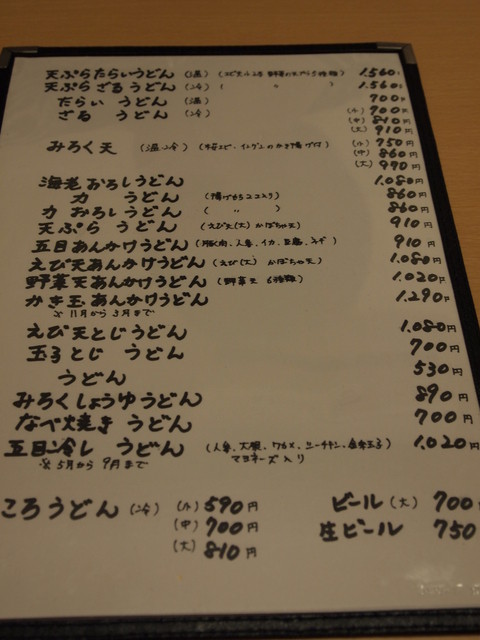 天ぷらたらいうどん (温) 1.560
天ぷらざるうどん (冷) ( 〃 ) 1.560
たらい うどん (温) 700円
ざる うどん (冷) (小) 700円
(中) 810円
(大) 910円
みろく天 (温冷) (小) 750円
(中) 860円
(大) 970円
海老おろしうどん 1.080円
力 うどん (揚げもち2コ入り) 860円
力 おろしうどん ( 〃 ) 860円
天ぷら うどん (えび天(大) かぼちゃ天) 910円
五目あんかけうどん (豚肉、人参、イカ、豆腐、ネギ) 910円
えび天あんかけうどん (えび(大) かぼちゃ天) 1.080円
野菜天あんかけうどん (野菜天 6種類) 1.020円
かき玉あんかけうどん 1.290円
※11月から3月まで
えび天とじうどん 1.080円
玉子とじ うどん 700円
うどん 530円
みろくしょうゆうどん 890円
なべ焼き うどん 700円
五目冷し うどん (人参、大根、ワカメ、シーチキン、金糸玉子) 1.020円
※5月から9月まで マヨネーズ入り
ころうどん (冷) (小) 590円
(中) 700円
(大) 810円
ビール (大) 700
生ビール 750